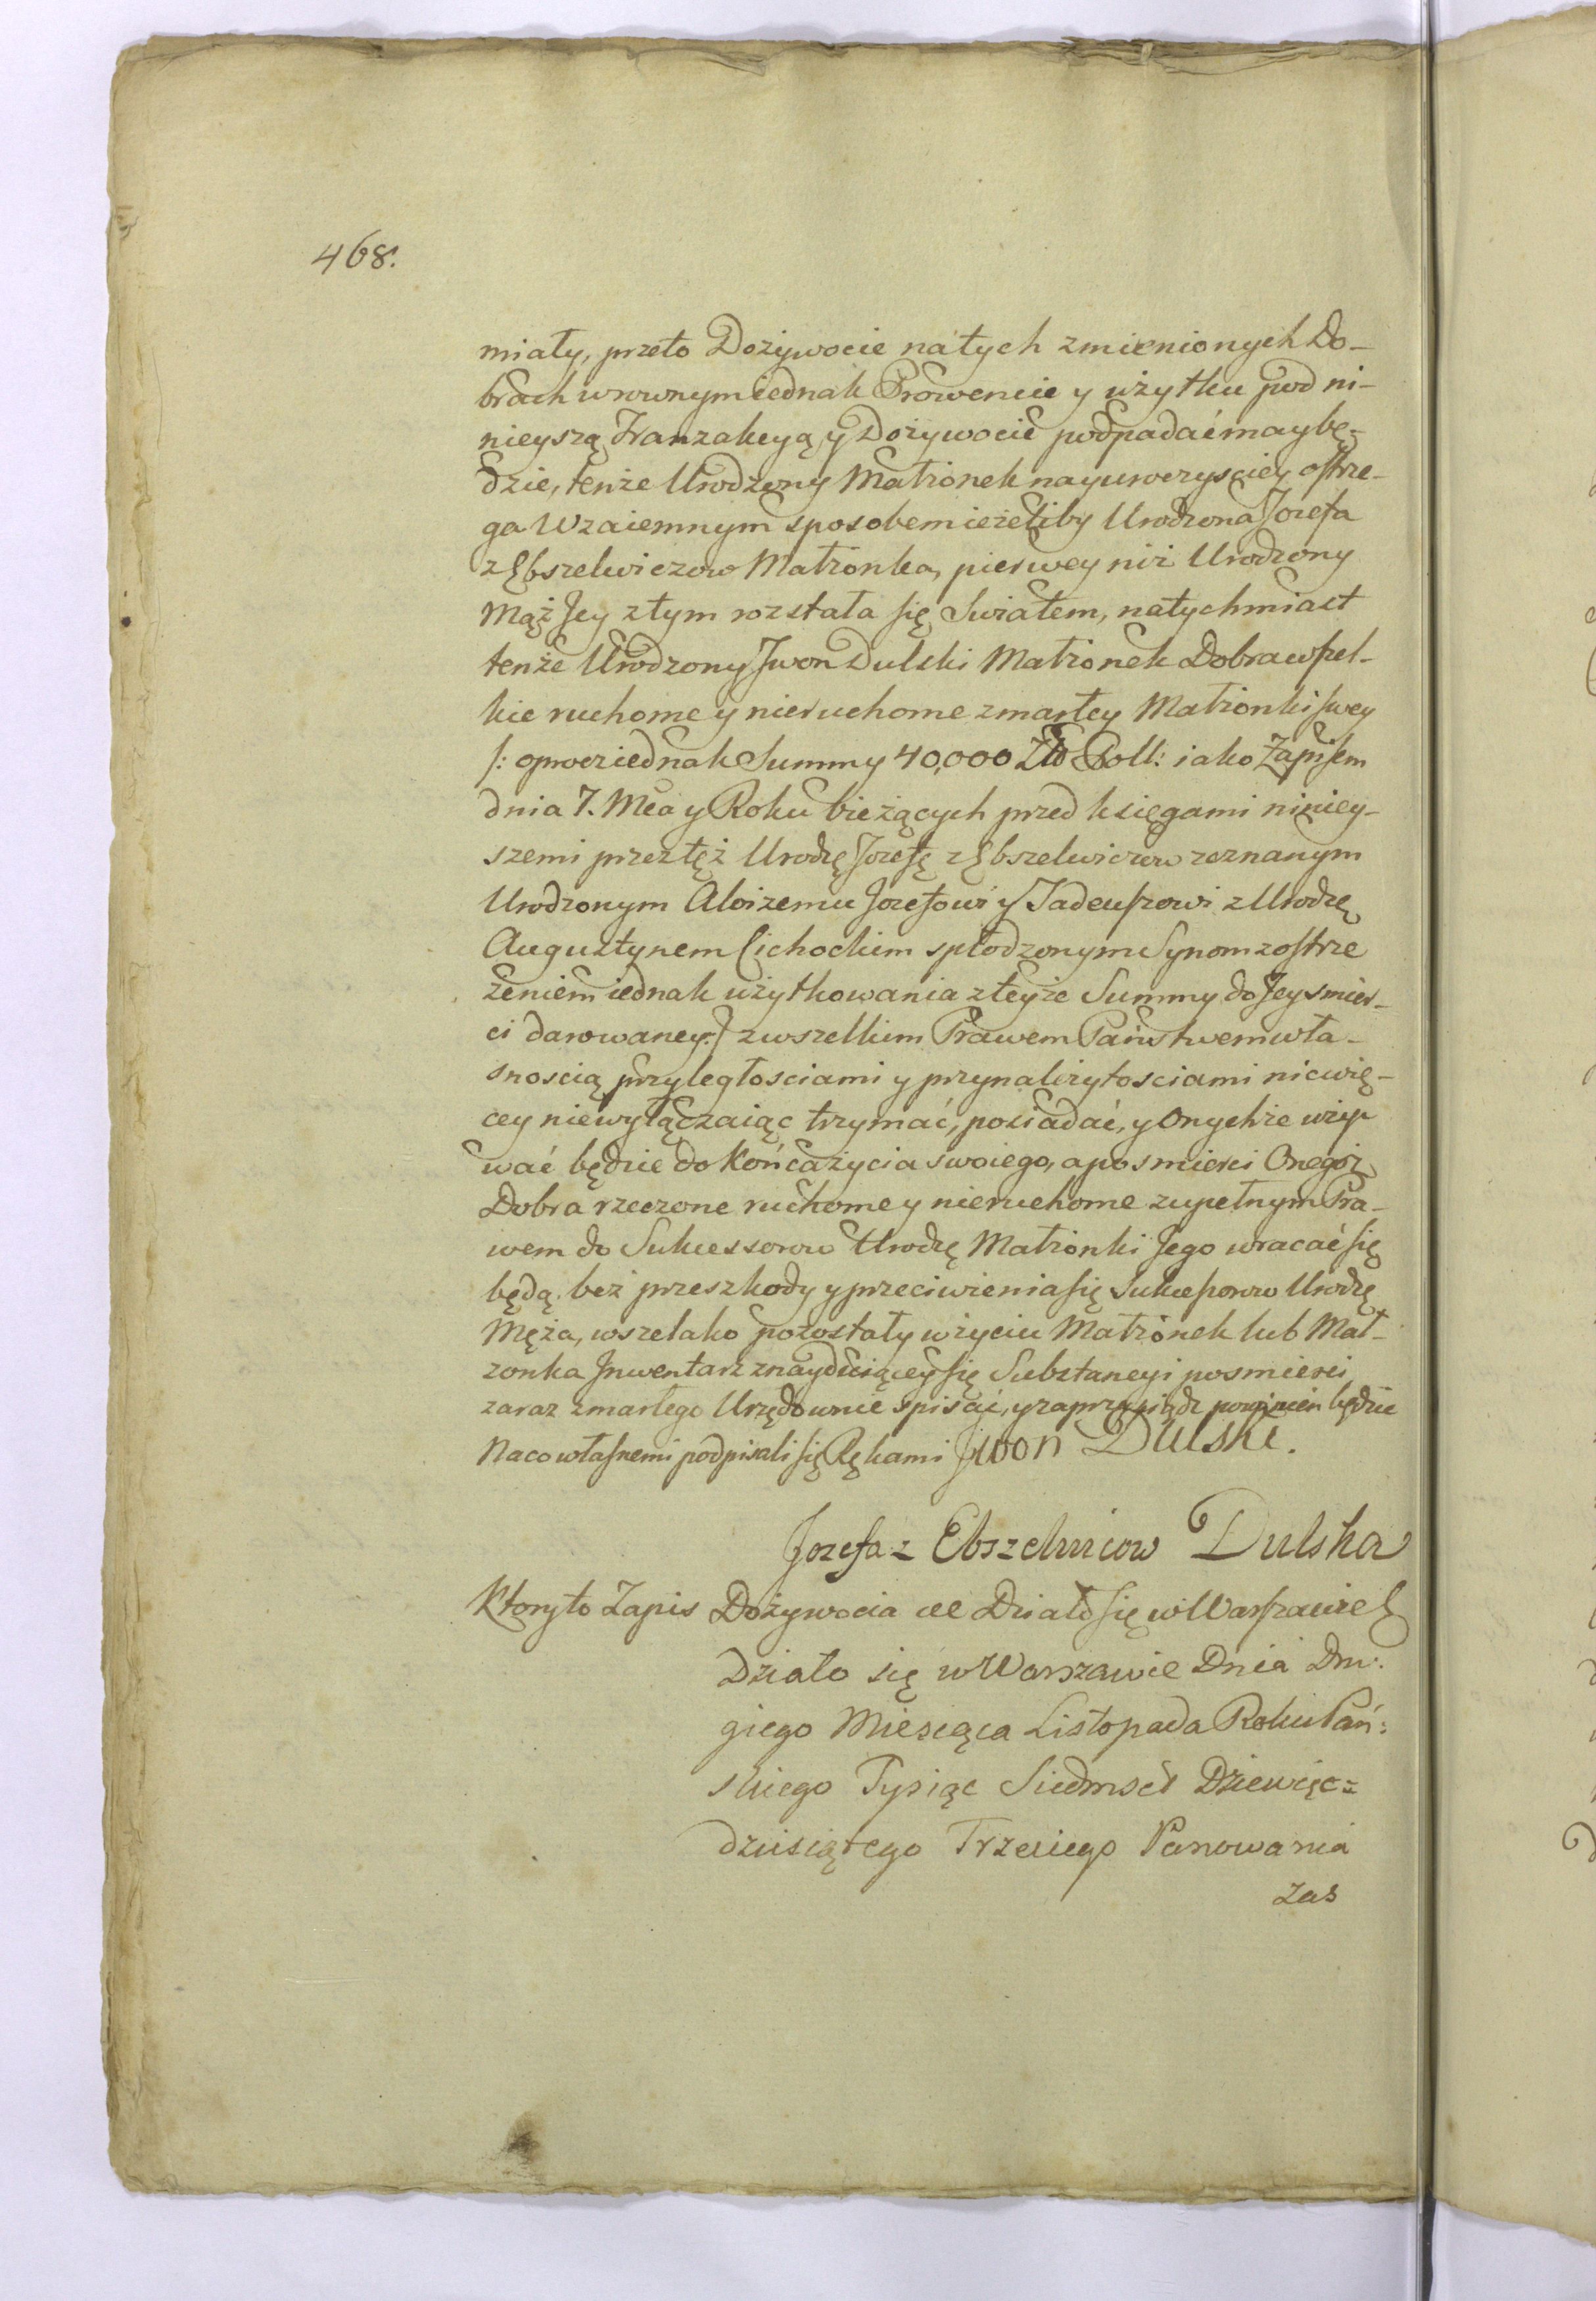 468.
miały, przeto Dożywocie na tych zmienionych Do-
brach w rownym iednak Prowencie y użytku pod ni-
nieyszą Tranzakcyą y Dożywocie podpadać maybę-
dzie, tenże Urodzony Małżonek nayuroczyściey ostrze-
ga Wzaiemnym sposobem ieżeliby Urodzona Jozefa
z Ebszelwiczow Małżonka, pierwey niż Urodzony
Mąż Jey z tym rozstała się Swiatem, natychmiast
tenże Urodzony Jwon Dulski Małżonek Dobra wszel-
kie ruchome y nieruchome zmarłey Małżonki swey
/: oprocz iednak Summy 40,000 Zło Poll: iako Zapisem
dnia 7. Mca y Roku bieżących przed księgami niniey-
szemi przez tęż Urodzę Jozefę z Ebszelwiczow zeznanym
Urodzonym Aloizemu Jozefowi y Tadeuszowi z Urodzę
Augustynem Cichockim spłodzonym Synom z ostrze
żeniem iednak użytkowania z teyże Summy do Jey smier-
ci darowaney :/ z wszelkim Prawem Państwem wła-
snoscią przyległosciami y przynależytosciami nic wię-
cey niewyłączaiąc trzymać, posiadać, y Onychże uży
wać będzie do Końca życia swoiego, a po smierci Onegoż
Dobra rzeczone ruchome y nieruchome zupełnym Pra-
wem do Sukcessorow Urodzę Małżonki Jego wracać się
będą bez przeszkody y przeciwienia się Sukcessorow Urodzę
Męża, wszelako pozostały w życiu Małżonek lub Mał-
zonka Jnwentarz znayduiącey się Substancyi po smierci
zaraz zmarłego Urzędownie spisać, y zaprzysiądz powinien będzie
Na co własnemi podpisali się Rękami Jwon Dulski.
Jozefa z Ebszelwicow Dulska
Ktory to Zapis Dożywocia
Działo się w Warszawie Dnia Dru:
giego Miesiąca Listopada Roku Pań:
skiego Tysiąc Siedmset Dziewięc=
dziesiątego Trzeciego Panowania
zas